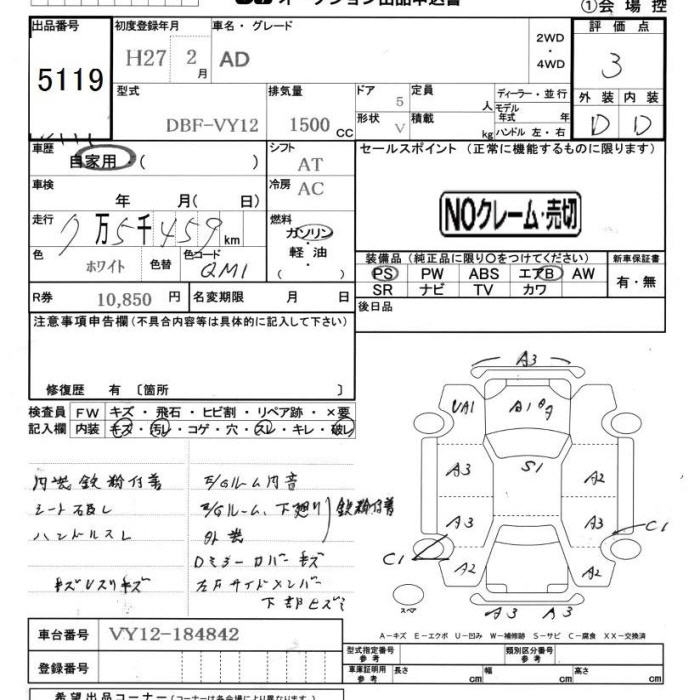 オークション出品申込書
①会場控
出品番号
5119
初度登録年月
H27 2月
車名・グレード
AD
2WD
・
4WD
評価点
3
外装 内装
D D
型式
DBF-VY12
排気量
1500 CC
ドア
5
形状
V
定員
人
積載
kg
ディーラー・並行
モデル年式 年
ハンドル 左・右
車歴
自家用・( )
シフト
AT
車検
年 月( 日)
冷房
AC
走行
7万5千459km
燃料
ガソリン・
軽油
・
( )
色
ホワイト
色替
色コード
QM1
R券
10,850 円
名変期限 月 日
セールスポイント (正常に機能するものに限ります)
NOクレーム・売切
装備品(純正品に限り○をつけてください)
PS PW ABS エアB AW
SR ナビ TV カワ
新車保証書
有・無
後日品
注意事項申告欄(不具合内容等は具体的に記入して下さい)
修復歴 有 〔箇所 〕
検査員記入欄
FW キズ・飛石・ヒビ割・リペア跡・×要
内装 キズ・汚レ・コゲ・穴・スレ・キレ・破レ
内装鉄粉付着
シート石バシ
ハンドルスレ
キズUスリキズ
E/Gルーム内音
E/Gルーム、下廻り
外装
鉄粉付着
Dミラーカバーキズ
左右サイドメンバー
下部ヒズミ
A3
UA1
A1
A3
S1
A2
A3
A3
C1
C1
A2
A2
スペア
A3 A3
A－キズ E－エクボ U－凹み W－補修跡 S－サビ C－腐食 XX－交換済
車台番号
VY12-184842
登録番号
型式指定番号
参考
類別区分番号
参考
車庫証明用
参考
長さ cm
幅 cm
高さ cm
希望出品コーナー(コーナーは各会場により異なります)